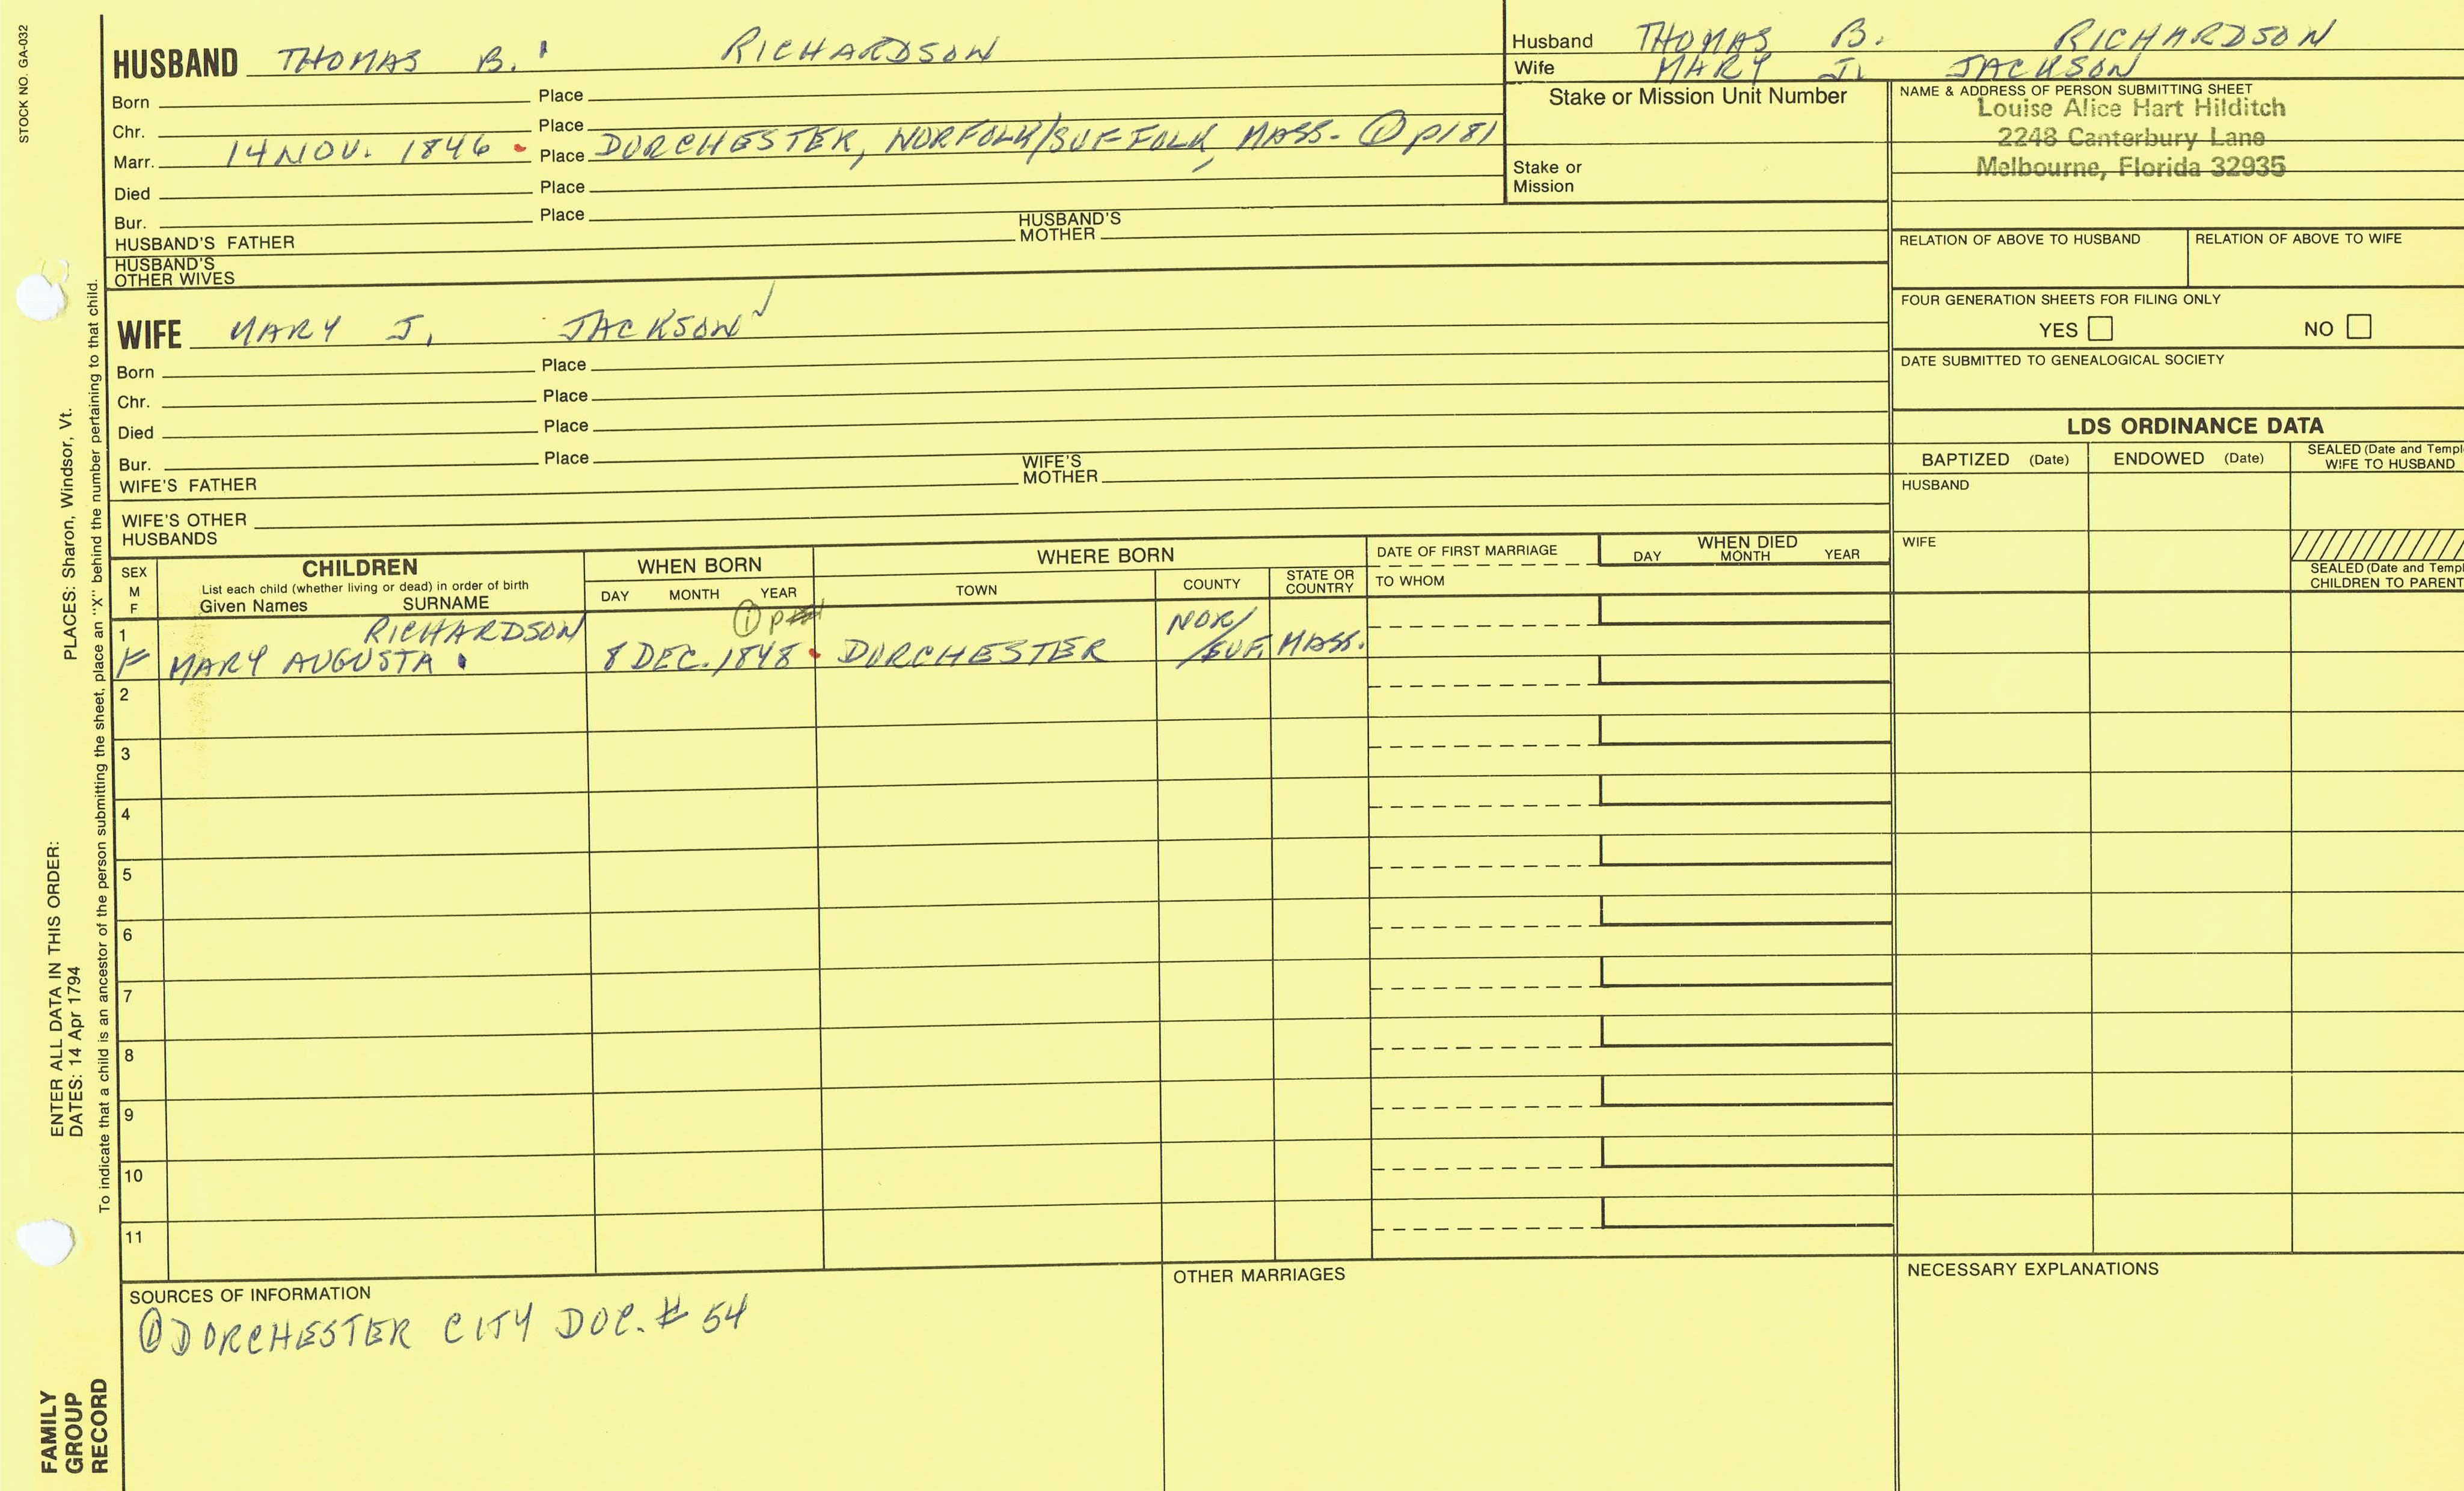 STOCK NO. GA-032
HUSBAND THOMAS B. RICHARDSON
Born Place
Chr. Place
Marr. 14 NOV. 1846 Place DORCHESTER, NORFOLK/SUFFOLK, MASS. ① p181
Died Place
Bur. Place
HUSBAND'S FATHER HUSBAND'S MOTHER
HUSBAND'S OTHER WIVES
WIFE MARY J. JACKSON
Born Place
Chr. Place
Died Place
Bur. Place
WIFE'S FATHER WIFE'S MOTHER
WIFE'S OTHER HUSBANDS
Husband THOMAS B. RICHARDSON
Wife MARY J. JACKSON
Stake or Mission Unit Number
Stake or Mission
NAME & ADDRESS OF PERSON SUBMITTING SHEET
Louise Alice Hart Hilditch
2248 Canterbury Lane
Melbourne, Florida 32935
RELATION OF ABOVE TO HUSBAND RELATION OF ABOVE TO WIFE
FOUR GENERATION SHEETS FOR FILING ONLY
YES NO
DATE SUBMITTED TO GENEALOGICAL SOCIETY
LDS ORDINANCE DATA
BAPTIZED (Date) ENDOWED (Date) SEALED (Date and Templ
WIFE TO HUSBAND
HUSBAND
WIFE
SEALED (Date and Templ
CHILDREN TO PARENT
SEX
M
F
CHILDREN
List each child (whether living or dead) in order of birth
Given Names SURNAME
WHEN BORN
DAY MONTH YEAR
WHERE BORN
TOWN COUNTY STATE OR COUNTRY
DATE OF FIRST MARRIAGE
TO WHOM
WHEN DIED
DAY MONTH YEAR
1 RICHARDSON ① NOR/
F MARY AUGUSTA 8 DEC. 1848 DORCHESTER /SUF. MASS.
2
3
4
5
6
7
8
9
10
11
SOURCES OF INFORMATION
① DORCHESTER CITY DOC. # 54
OTHER MARRIAGES
NECESSARY EXPLANATIONS
ENTER ALL DATA IN THIS ORDER:
DATES: 14 Apr 1794 PLACES: Sharon, Windsor, Vt.
To indicate that a child is an ancestor of the person submitting the sheet, place an "X" behind the number pertaining to that child.
FAMILY
GROUP
RECORD